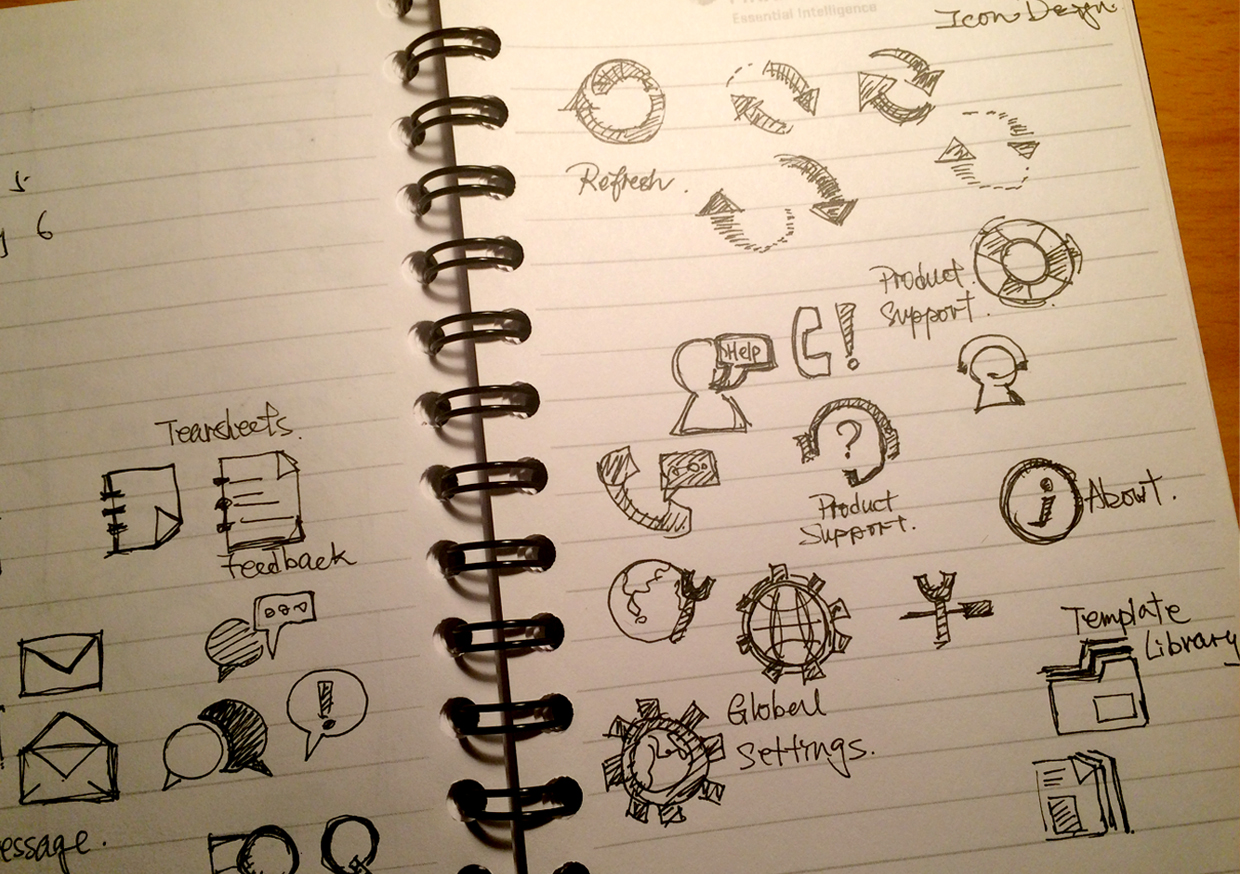 5.
y 6
Tearsheets.
Feedback
essage.
Essential Intelligence
Icon Design
Refresh.
Product
Support.
Help
!
?
Product
Support.
i
About.
Template
Library
!
Globall
Settings.